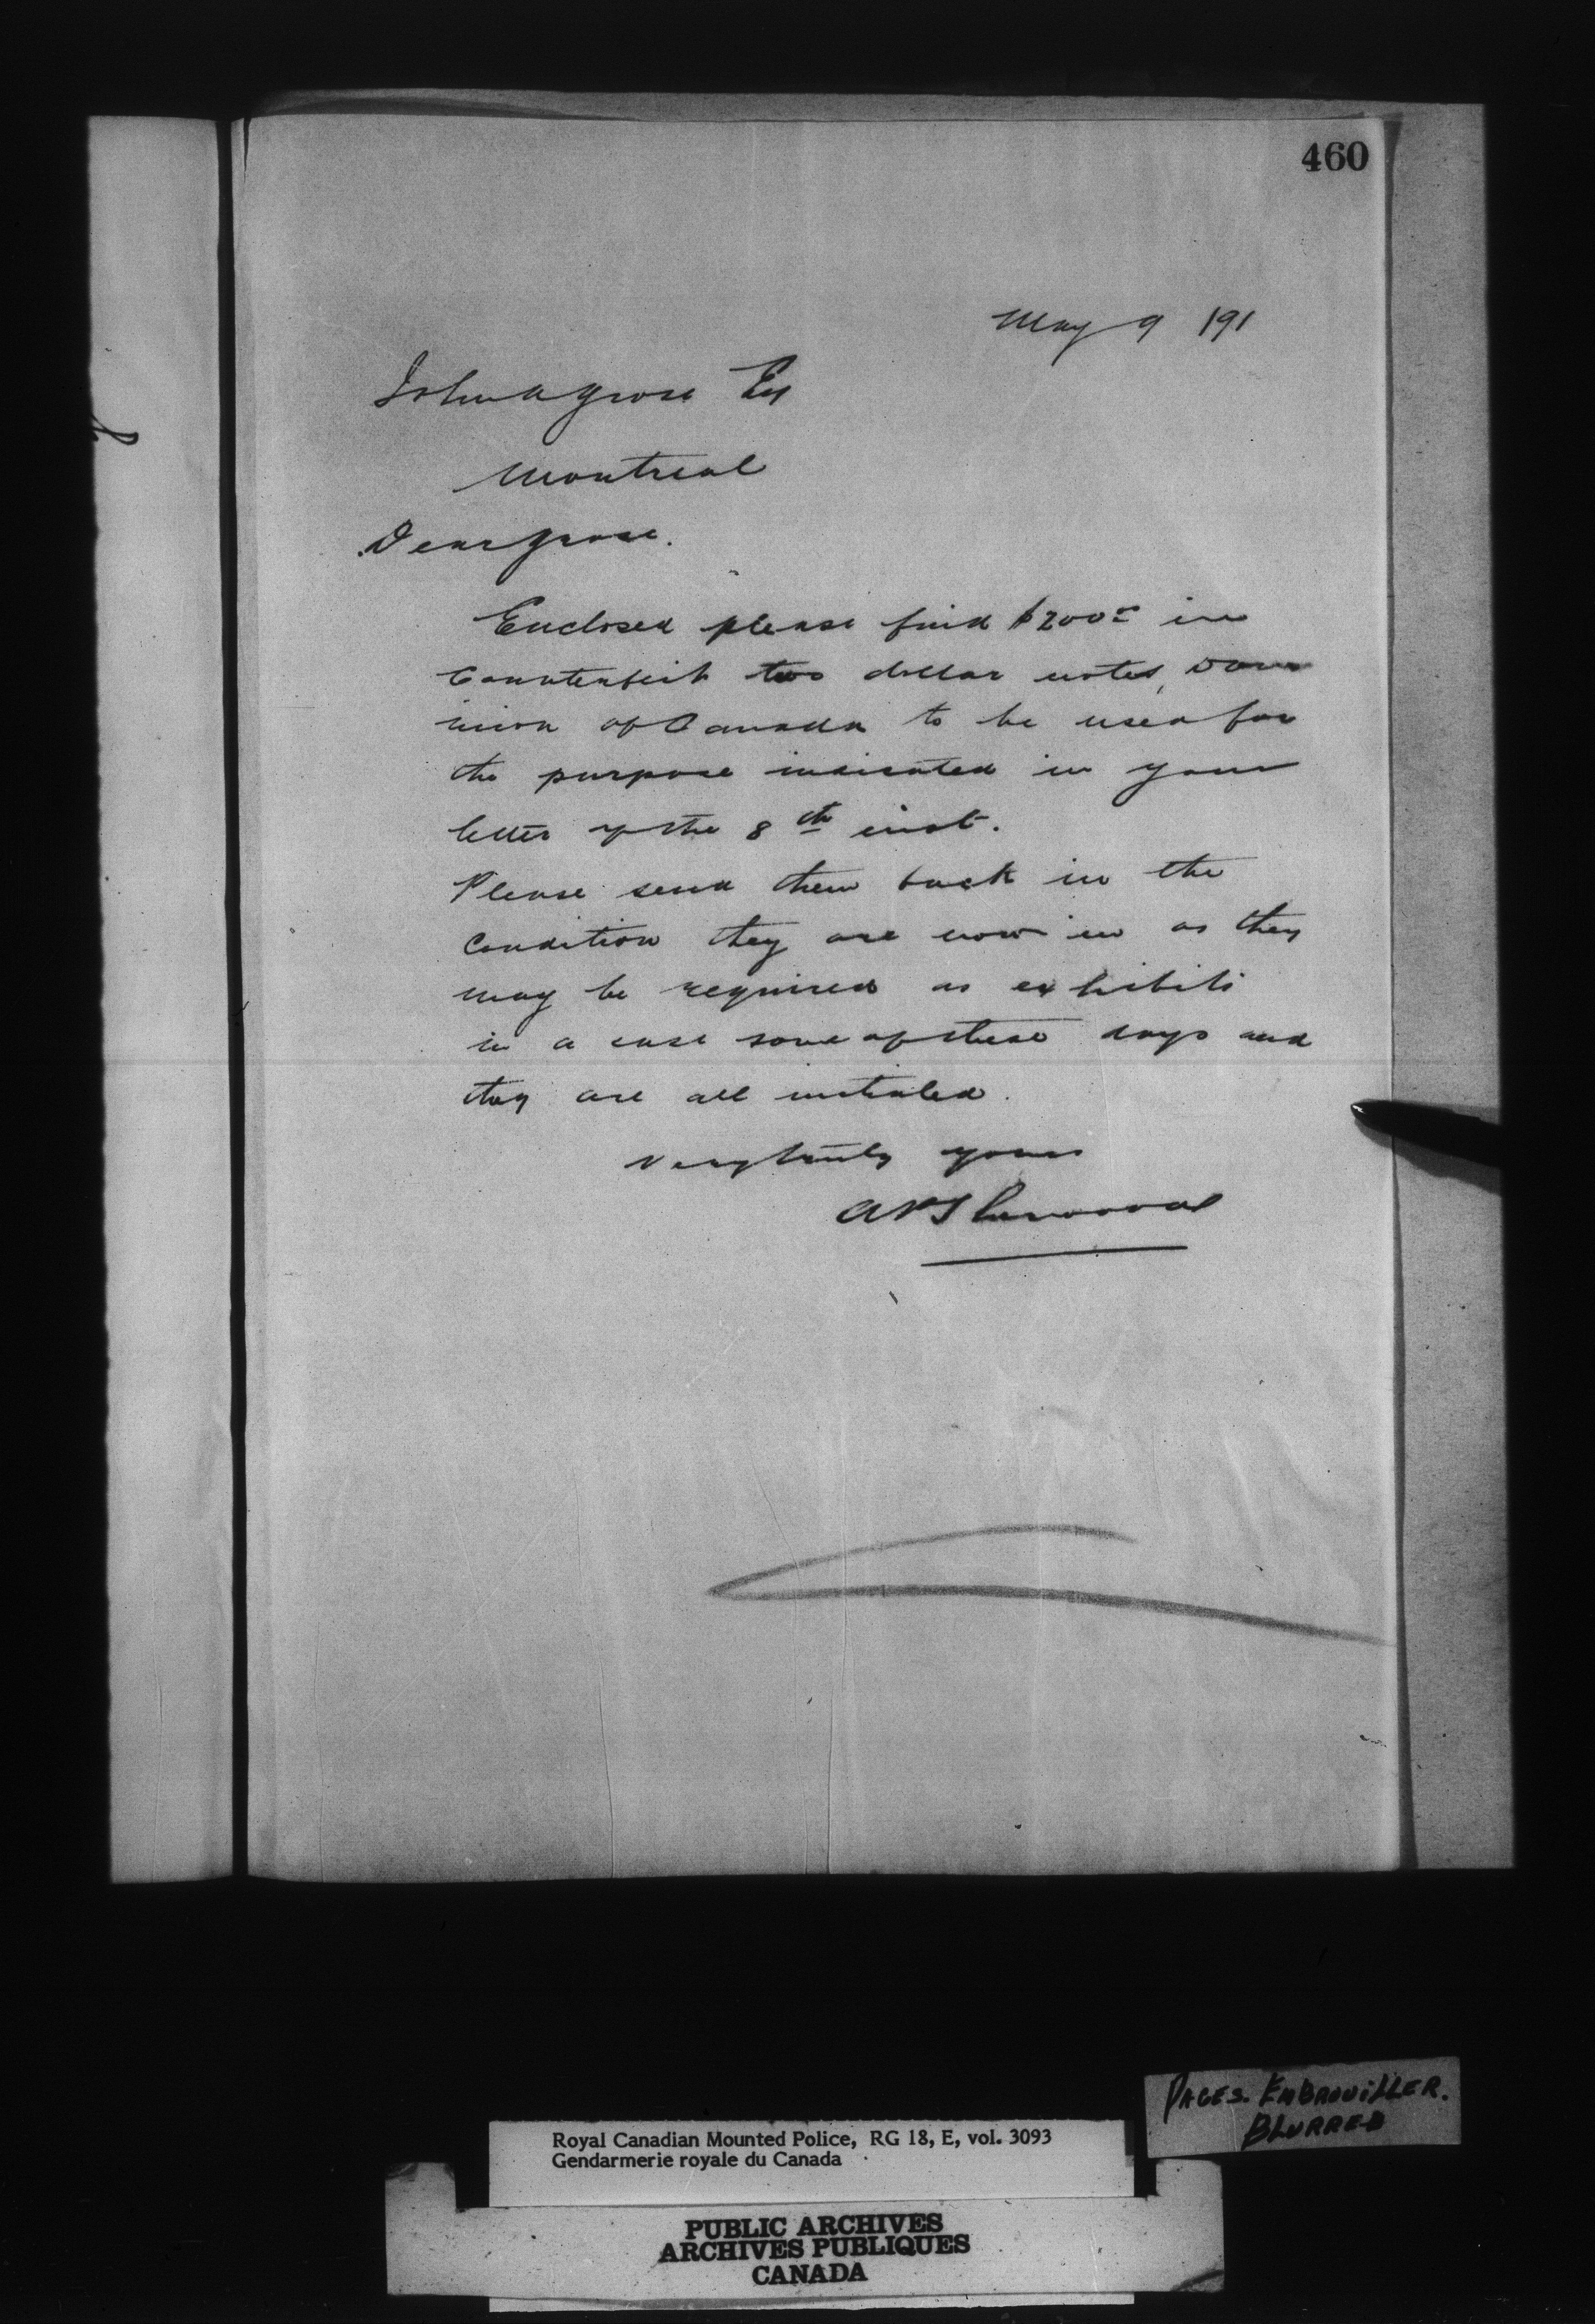 460
May 9 191
John A Grose Esq
Montreal
Dear Grose.
Enclosed please find $200 00 in
Counterfeit two dollar notes, Dom
inion of Canada to be used for
the purpose indicated in your
letter of the 8th inst.
Please send them back in the
Condition they are now in as they
may be required as exhibits
in a case some of these days and
they are all initialed.
Very truly yours
A P Sherwood
PAGES. EMBROUILLER.
BLURRED
Royal Canadian Mounted Police, RG 18, E, vol. 3093
Gendarmerie royale du Canada
PUBLIC ARCHIVES
ARCHIVES PUBLIQUES
CANADA